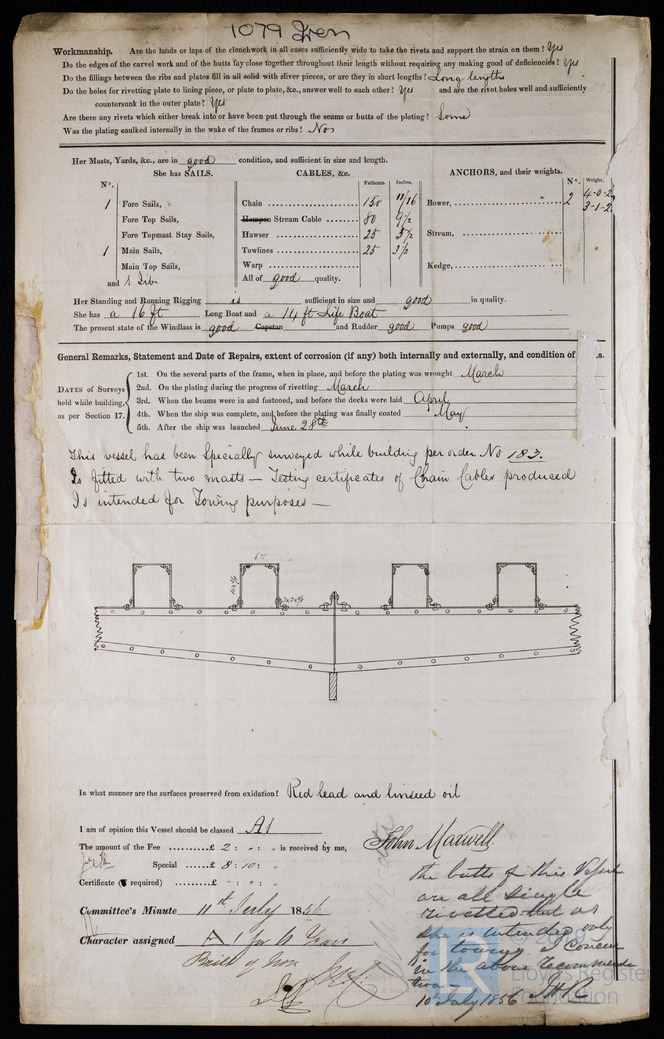 1079 Iron
Workmanship. Are the lands or laps of the clenchwork in all cases sufficiently wide to take the rivets and support the strain on them? Yes
Do the edges of the carvel work and of the butts fay close together throughout their length without requiring any making good of deficiencies? Yes
Do the fillings between the ribs and plates fill in all solid with sliver pieces, or are they in short lengths? Long lengths
Do the holes for rivetting plate to lining piece, or plate to plate, &c., answer well to each other? Yes and are the rivet holes well and sufficiently
countersunk in the outer plate? Yes
Are there any rivets which either break into or have been put through the seams or butts of the plating? Some
Was the plating caulked internally in the wake of the frames or ribs? No
Her Masts, Yards, &c., are in good condition, and sufficient in size and length.
She has SAILS. CABLES, &c. Fathoms. Inches. ANCHORS, and their weights. Nº. Weight.
Nº.
1 Fore Sails, Chain 150 11/16 Bower, 2 4-0-2
3-1-2
Fore Top Sails, Hempen Stream Cable 80 9½
Fore Topmast Stay Sails, Hawser 25 5½ Stream,
1 Main Sails, Towlines 25 3½
Main Top Sails, Warp Kedge,
and 1 Jib All of good quality.
Her Standing and Running Rigging is sufficient in size and good in quality.
She has a 16 ft Long Boat and a 14 ft Life Boat
The present state of the Windlass is good Capstan and Rudder good Pumps good
General Remarks, Statement and Date of Repairs, extent of corrosion (if any) both internally and externally, and condition of
DATES of Surveys held while building, as per Section 17.
1st. On the several parts of the frame, when in place, and before the plating was wrought March
2nd. On the plating during the progress of rivetting March
3rd. When the beams were in and fastened, and before the decks were laid April
4th. When the ship was complete, and before the plating was finally coated May
5th. After the ship was launched June 28th
This vessel has been Specially surveyed while building per order No 183.
Is fitted with two masts — Testing certificates of Chain Cables produced
Is intended for Towing purposes —
In what manner are the surfaces preserved from oxidation? Red lead and linseed oil
I am of opinion this Vessel should be classed A1
John Maxwell.
The amount of the Fee £ 2 : " : " is received by me,
Special £ 8 : 10 : "
Certificate ( required) £ " : " : "
Committee's Minute 11th July 1856
Character assigned A 1 for 6 Years
Built of Iron
The butts of this Vessel
are all single
rivetted but as
she is intended only
for towing I concur
in the above recommenda
tion —
10th July 1856
© 2018
Lloyd's Register
Foundation